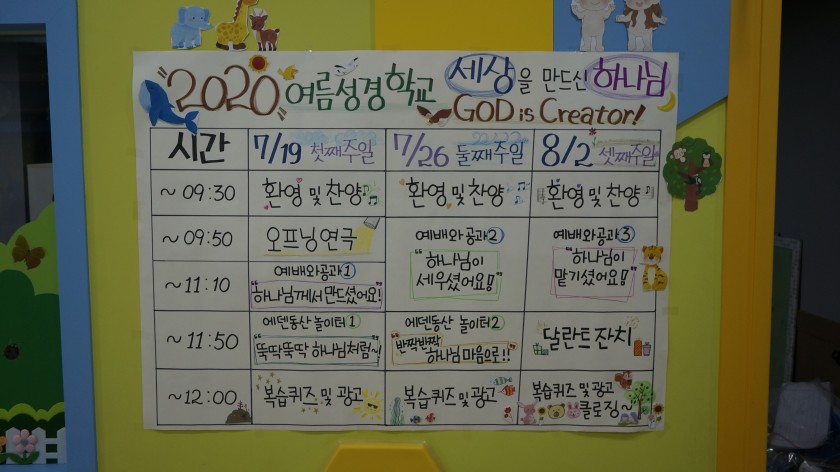 "2020" 여름성경학교 세상을 만드신 하나님
GOD is Creator!
시간 7/19 첫째주일 7/26 둘째주일 8/2 셋째주일
~ 09:30 환영 및 찬양 환영 및 찬양 환영 및 찬양
~ 09:50 오프닝연극
예배와공과② "하나님이 세우셨어요!"
예배와공과③ "하나님이 맡기셨어요!"
~ 11:10 예배와공과① "하나님께서 만드셨어요!"
~ 11:50 에덴동산 놀이터 1 "뚝딱뚝딱 하나님처럼~!"
에덴동산 놀이터 2 "반짝반짝 하나님마음으로!!"
달란트잔치
~ 12:00 복습퀴즈 및 광고 복습퀴즈 및 광고 복습퀴즈 및 광고
클로징~